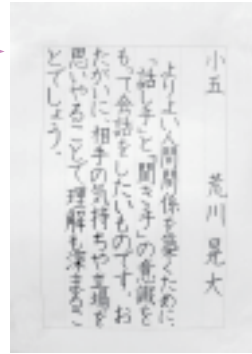 小五　荒川晃大
よりよい人間関係を築くために、
「話し手」と「聞き手」の意識を
もって会話をしたいものです。お
たがいに、相手の気持ちや立場を
思いやることで理解も深まるこ
とでしょう。